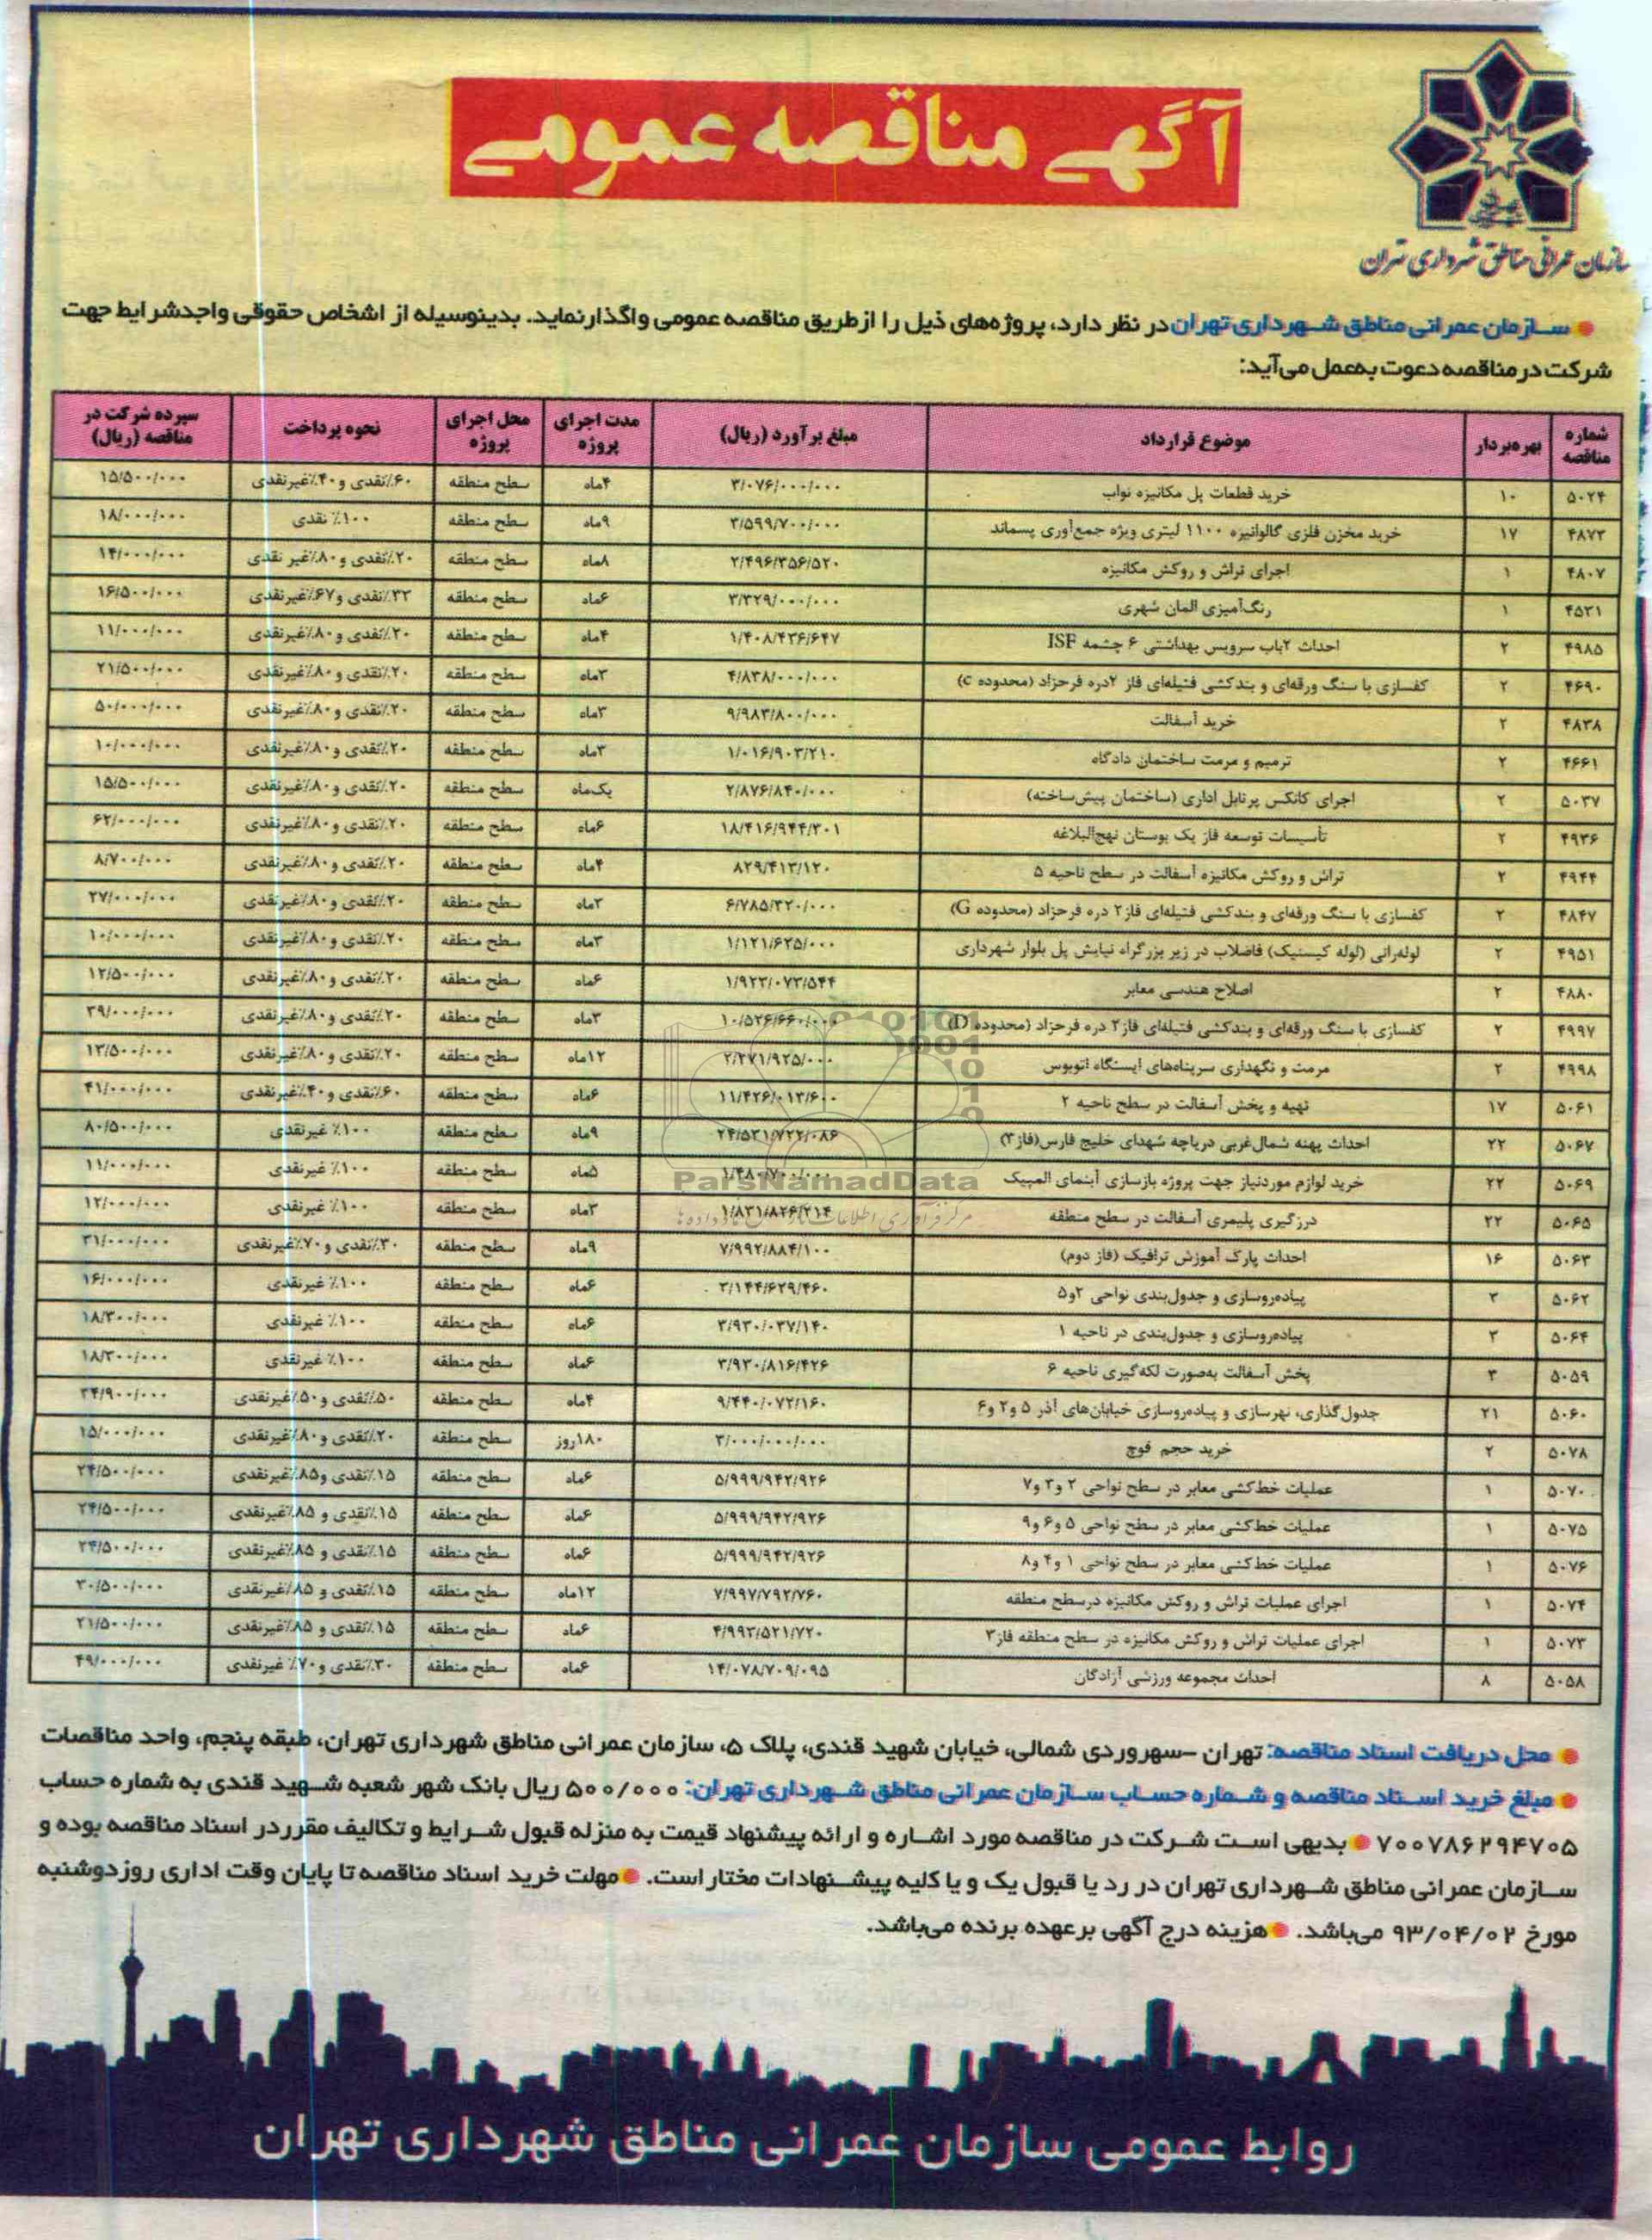 آگهی مناقصه عمومی
سازمان عمرانی مناطق شهرداری تهران
سازمان عمرانی مناطق شهرداری تهران در نظر دارد، پروژه‌های ذیل را از طریق مناقصه عمومی واگذار نماید. بدینوسیله از اشخاص حقوقی واجد شرایط جهت
شرکت در مناقصه دعوت به‌عمل می‌آید:
شماره مناقصه | بهره‌بردار | موضوع قرارداد | مبلغ برآورد (ریال) | مدت اجرای پروژه | محل اجرای پروژه | نحوه پرداخت | سپرده شرکت در مناقصه (ریال)
۵۰۲۴ | ۱۰ | خرید قطعات پل مکانیزه نواب | ۳/۰۷۶/۰۰۰/۰۰۰ | ۴ماه | سطح منطقه | ۶۰٪نقدی و ۴۰٪غیرنقدی | ۱۵/۵۰۰/۰۰۰
۴۸۷۳ | ۱۷ | خرید مخزن فلزی گالوانیزه ۱۱۰۰ لیتری ویژه جمع‌آوری پسماند | ۳/۵۹۹/۷۰۰/۰۰۰ | ۹ماه | سطح منطقه | ۱۰۰٪ نقدی | ۱۸/۰۰۰/۰۰۰
۴۸۰۷ | ۱ | اجرای تراش و روکش مکانیزه | ۲/۴۹۶/۳۵۶/۵۲۰ | ۸ماه | سطح منطقه | ۲۰٪نقدی و ۸۰٪غیر نقدی | ۱۴/۰۰۰/۰۰۰
۴۵۳۱ | ۱ | رنگ‌آمیزی المان شهری | ۳/۳۲۹/۰۰۰/۰۰۰ | ۶ماه | سطح منطقه | ۳۳٪نقدی و ۶۷٪غیرنقدی | ۱۶/۵۰۰/۰۰۰
۴۹۸۵ | ۲ | احداث ۲باب سرویس بهداشتی ۶ چشمه ISF | ۱/۴۰۸/۴۳۶/۶۴۷ | ۴ماه | سطح منطقه | ۲۰٪نقدی و ۸۰٪غیرنقدی | ۱۱/۰۰۰/۰۰۰
۴۶۹۰ | ۲ | کفسازی با سنگ ورقه‌ای و بندکشی فتیله‌ای فاز ۲دره فرحزاد (محدوده c) | ۴/۸۳۸/۰۰۰/۰۰۰ | ۳ماه | سطح منطقه | ۲۰٪نقدی و ۸۰٪غیرنقدی | ۲۱/۵۰۰/۰۰۰
۴۸۳۸ | ۲ | خرید آسفالت | ۹/۹۸۳/۸۰۰/۰۰۰ | ۳ماه | سطح منطقه | ۲۰٪نقدی و ۸۰٪غیرنقدی | ۵۰/۰۰۰/۰۰۰
۴۶۶۱ | ۲ | ترمیم و مرمت ساختمان دادگاه | ۱/۰۱۶/۹۰۳/۲۱۰ | ۳ماه | سطح منطقه | ۲۰٪نقدی و ۸۰٪غیرنقدی | ۱۰/۰۰۰/۰۰۰
۵۰۳۷ | ۲ | اجرای کانکس پرتابل اداری (ساختمان پیش‌ساخته) | ۲/۸۷۶/۸۴۰/۰۰۰ | یک‌ماه | سطح منطقه | ۲۰٪نقدی و ۸۰٪غیرنقدی | ۱۵/۵۰۰/۰۰۰
۴۹۳۶ | ۲ | تأسیسات توسعه فاز یک بوستان نهج‌البلاغه | ۱۸/۴۱۶/۹۴۴/۳۰۱ | ۶ماه | سطح منطقه | ۲۰٪نقدی و ۸۰٪غیرنقدی | ۶۲/۰۰۰/۰۰۰
۴۹۴۴ | ۲ | تراش و روکش مکانیزه آسفالت در سطح ناحیه ۵ | ۸۲۹/۴۱۳/۱۲۰ | ۴ماه | سطح منطقه | ۲۰٪نقدی و ۸۰٪غیرنقدی | ۸/۷۰۰/۰۰۰
۴۸۴۷ | ۲ | کفسازی با سنگ ورقه‌ای و بندکشی فتیله‌ای فاز۲ دره فرحزاد (محدوده G) | ۶/۷۸۵/۳۲۰/۰۰۰ | ۳ماه | سطح منطقه | ۲۰٪نقدی و ۸۰٪غیرنقدی | ۲۷/۰۰۰/۰۰۰
۴۹۵۱ | ۲ | لوله‌رانی (لوله کیستیک) فاضلاب در زیر بزرگراه نیایش پل بلوار شهرداری | ۱/۱۲۱/۶۲۵/۰۰۰ | ۳ماه | سطح منطقه | ۲۰٪نقدی و ۸۰٪غیرنقدی | ۱۰/۰۰۰/۰۰۰
۴۸۸۰ | ۲ | اصلاح هندسی معابر | ۱/۹۲۳/۰۷۳/۵۴۴ | ۶ماه | سطح منطقه | ۲۰٪نقدی و ۸۰٪غیرنقدی | ۱۲/۵۰۰/۰۰۰
۴۹۹۷ | ۲ | کفسازی با سنگ ورقه‌ای و بندکشی فتیله‌ای فاز۲ دره فرحزاد (محدوده D) | ۱۰/۵۲۶/۶۶۰/۰۰۰ | ۳ماه | سطح منطقه | ۲۰٪نقدی و ۸۰٪غیرنقدی | ۳۹/۰۰۰/۰۰۰
۴۹۹۸ | ۲ | مرمت و نگهداری سرپناه‌های ایستگاه اتوبوس | ۲/۲۷۱/۹۲۵/۰۰۰ | ۱۲ماه | سطح منطقه | ۲۰٪نقدی و ۸۰٪غیرنقدی | ۱۳/۵۰۰/۰۰۰
۵۰۶۱ | ۱۷ | تهیه و پخش آسفالت در سطح ناحیه ۲ | ۱۱/۴۲۶/۰۱۳/۶۰۰ | ۶ماه | سطح منطقه | ۶۰٪نقدی و ۴۰٪غیرنقدی | ۴۱/۰۰۰/۰۰۰
۵۰۶۷ | ۲۲ | احداث پهنه شمال‌غربی دریاچه شهدای خلیج فارس(فاز۳) | ۲۴/۵۳۱/۷۲۲/۰۸۶ | ۹ماه | سطح منطقه | ۱۰۰٪ غیرنقدی | ۸۰/۵۰۰/۰۰۰
۵۰۶۹ | ۲۲ | خرید لوازم موردنیاز جهت پروژه بازسازی آبنمای المپیک | ۱/۴۸۰/۷۰۰/۰۰۰ | ۵ماه | سطح منطقه | ۱۰۰٪ غیرنقدی | ۱۱/۰۰۰/۰۰۰
۵۰۶۵ | ۲۲ | درزگیری پلیمری آسفالت در سطح منطقه | ۱/۸۳۱/۸۲۶/۲۱۴ | ۳ماه | سطح منطقه | ۱۰۰٪ غیرنقدی | ۱۲/۰۰۰/۰۰۰
۵۰۶۳ | ۱۶ | احداث پارک آموزش ترافیک (فاز دوم) | ۷/۹۹۲/۸۸۴/۱۰۰ | ۹ماه | سطح منطقه | ۳۰٪نقدی و ۷۰٪غیرنقدی | ۳۱/۰۰۰/۰۰۰
۵۰۶۲ | ۳ | پیاده‌روسازی و جدول‌بندی نواحی ۲و۵ | ۳/۱۴۴/۶۲۹/۴۶۰ | ۶ماه | سطح منطقه | ۱۰۰٪ غیرنقدی | ۱۶/۰۰۰/۰۰۰
۵۰۶۴ | ۳ | پیاده‌روسازی و جدول‌بندی در ناحیه ۱ | ۳/۹۳۰/۰۳۷/۱۴۰ | ۶ماه | سطح منطقه | ۱۰۰٪ غیرنقدی | ۱۸/۳۰۰/۰۰۰
۵۰۵۹ | ۳ | پخش آسفالت به‌صورت لکه‌گیری ناحیه ۶ | ۳/۹۳۰/۸۱۶/۴۲۶ | ۶ماه | سطح منطقه | ۱۰۰٪ غیرنقدی | ۱۸/۳۰۰/۰۰۰
۵۰۶۰ | ۲۱ | جدول‌گذاری، نهرسازی و پیاده‌روسازی خیابان‌های آذر ۵ و۲ و۶ | ۹/۴۴۰/۰۷۲/۱۶۰ | ۴ماه | سطح منطقه | ۵۰٪نقدی و ۵۰٪غیرنقدی | ۳۴/۹۰۰/۰۰۰
۵۰۷۸ | ۲ | خرید حجم قوچ | ۳/۰۰۰/۰۰۰/۰۰۰ | ۱۸۰روز | سطح منطقه | ۲۰٪نقدی و ۸۰٪غیرنقدی | ۱۵/۰۰۰/۰۰۰
۵۰۷۰ | ۱ | عملیات خط‌کشی معابر در سطح نواحی ۲ و۳ و۷ | ۵/۹۹۹/۹۴۲/۹۲۶ | ۶ماه | سطح منطقه | ۱۵٪نقدی و۸۵٪غیرنقدی | ۲۴/۵۰۰/۰۰۰
۵۰۷۵ | ۱ | عملیات خط‌کشی معابر در سطح نواحی ۵ و۶ و۹ | ۵/۹۹۹/۹۴۲/۹۲۶ | ۶ماه | سطح منطقه | ۱۵٪نقدی و ۸۵٪غیرنقدی | ۲۴/۵۰۰/۰۰۰
۵۰۷۶ | ۱ | عملیات خط‌کشی معابر در سطح نواحی ۱ و۴ و۸ | ۵/۹۹۹/۹۴۲/۹۲۶ | ۶ماه | سطح منطقه | ۱۵٪نقدی و ۸۵٪غیرنقدی | ۲۴/۵۰۰/۰۰۰
۵۰۷۴ | ۱ | اجرای عملیات تراش و روکش مکانیزه درسطح منطقه | ۷/۹۹۷/۷۹۲/۷۶۰ | ۱۲ماه | سطح منطقه | ۱۵٪نقدی و ۸۵٪غیرنقدی | ۳۰/۵۰۰/۰۰۰
۵۰۷۳ | ۱ | اجرای عملیات تراش و روکش مکانیزه در سطح منطقه فاز۳ | ۴/۹۹۳/۵۲۱/۷۲۰ | ۶ماه | سطح منطقه | ۱۵٪نقدی و ۸۵٪غیرنقدی | ۲۱/۵۰۰/۰۰۰
۵۰۵۸ | ۸ | احداث مجموعه ورزشی آزادگان | ۱۴/۰۷۸/۷۰۹/۰۹۵ | ۶ماه | سطح منطقه | ۳۰٪نقدی و ۷۰٪ غیرنقدی | ۴۹/۰۰۰/۰۰۰
ParsNamadData
محل دریافت اسناد مناقصه: تهران -سهروردی شمالی، خیابان شهید قندی، پلاک ۵، سازمان عمرانی مناطق شهرداری تهران، طبقه پنجم، واحد مناقصات
مبلغ خرید اسناد مناقصه و شماره حساب سازمان عمرانی مناطق شهرداری تهران: ۵۰۰/۰۰۰ ریال بانک شهر شعبه شهید قندی به شماره حساب
۷۰۰۷۸۶۲۹۴۷۰۵ بدیهی است شرکت در مناقصه مورد اشاره و ارائه پیشنهاد قیمت به منزله قبول شرایط و تکالیف مقرر در اسناد مناقصه بوده و
سازمان عمرانی مناطق شهرداری تهران در رد یا قبول یک و یا کلیه پیشنهادات مختار است. مهلت خرید اسناد مناقصه تا پایان وقت اداری روز دوشنبه
مورخ ۹۳/۰۴/۰۲ می‌باشد. هزینه درج آگهی برعهده برنده می‌باشد.
روابط عمومی سازمان عمرانی مناطق شهرداری تهران